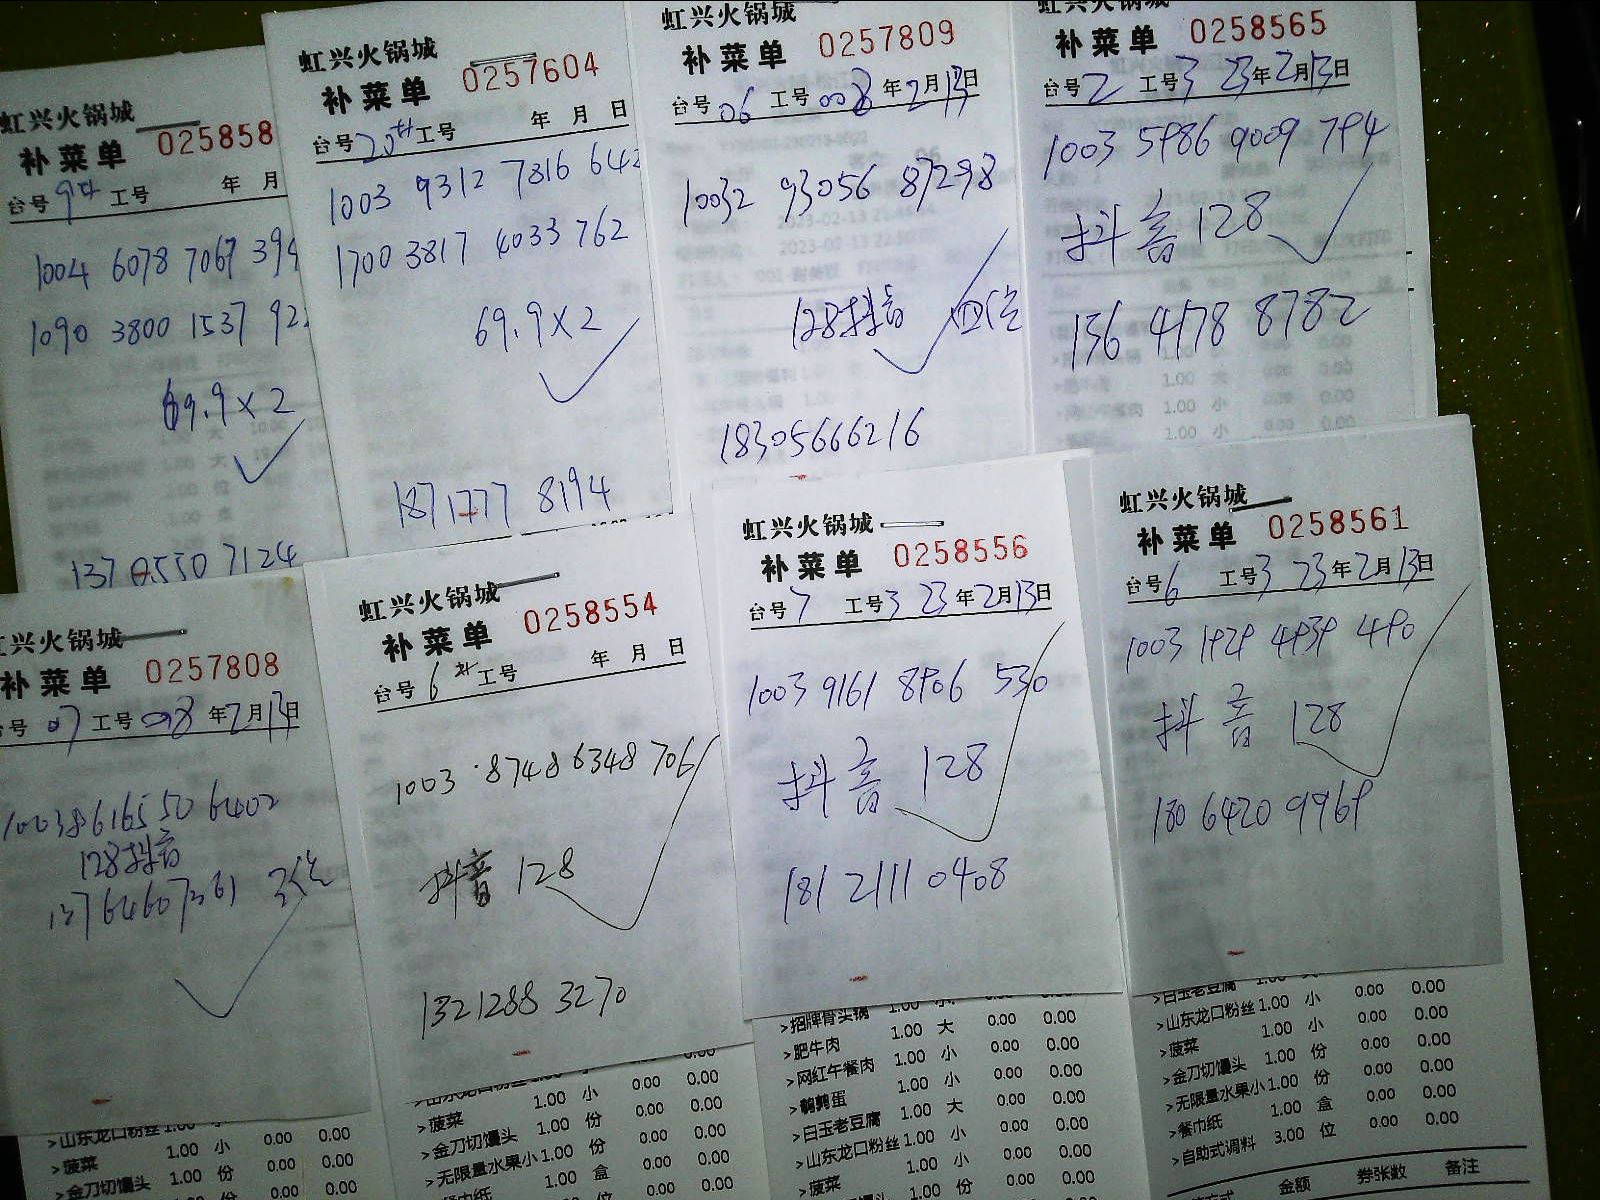 虹兴火锅城
补菜单 025858
台号 9 工号 年 月
1004 6078 7067 394
1090 3800 1537 92
69.9×2
137 0550 7124
虹兴火锅城
补菜单 0257604
台号 20 工号 年 月 日
1003 9312 7816 642
1700 3817 4033 762
69.9×2
187 1777 8194
虹兴火锅城
补菜单 0257809
台号 06 工号 008 年 2月 13日
10032 93056 87298
128抖音 四位
18305666216
虹兴火锅城
补菜单 0258565
台号 2 工号 3 23年 2月 13日
1003 5986 9009 794
抖音 128
136 4178 8782
1.00 大 0.00 0.00
1.00 小 0.00 0.00
1.00 小 0.00 0.00
虹兴火锅城
补菜单 0257808
台号 07 工号 008 年 2月 13日
100386165506402
128抖音
13764607361 3位
>山东龙口粉丝 1.00 小 0.00 0.00
>菠菜 1.00 份 0.00 0.00
>金刀切馒头 1.00 份 0.00 0.00
虹兴火锅城
补菜单 0258554
台号 6 工号 年 月 日
1003 8748 6348 706
抖音 128
1321288 3270
>山东龙口粉丝 1.00 小 0.00 0.00
>菠菜 1.00 小 0.00 0.00
>金刀切馒头 1.00 份 0.00 0.00
>无限量水果小 1.00 份 0.00 0.00
>餐巾纸 1.00 盒 0.00 0.00
虹兴火锅城
补菜单 0258556
台号 7 工号 3 23年 2月 13日
1003 9161 8906 530
抖音 128
181 2111 0408
>招牌骨头锅 1.00 小 0.00 0.00
>肥牛肉 1.00 大 0.00 0.00
>网红午餐肉 1.00 小 0.00 0.00
>鹌鹑蛋 1.00 小 0.00 0.00
>白玉老豆腐 1.00 大 0.00 0.00
>山东龙口粉丝 1.00 小 0.00 0.00
>菠菜 1.00 小 0.00 0.00
虹兴火锅城
补菜单 0258561
台号 6 工号 3 23年 2月 13日
1003 1929 4939 490
抖音 128
180 6420 9969
>白玉老豆腐 1.00 大 0.00 0.00
>山东龙口粉丝 1.00 小 0.00 0.00
>菠菜 1.00 小 0.00 0.00
>金刀切馒头 1.00 份 0.00 0.00
>无限量水果小 1.00 份 0.00 0.00
>餐巾纸 1.00 盒 0.00 0.00
>自助式调料 3.00 位 0.00 0.00
金额 券张数 备注